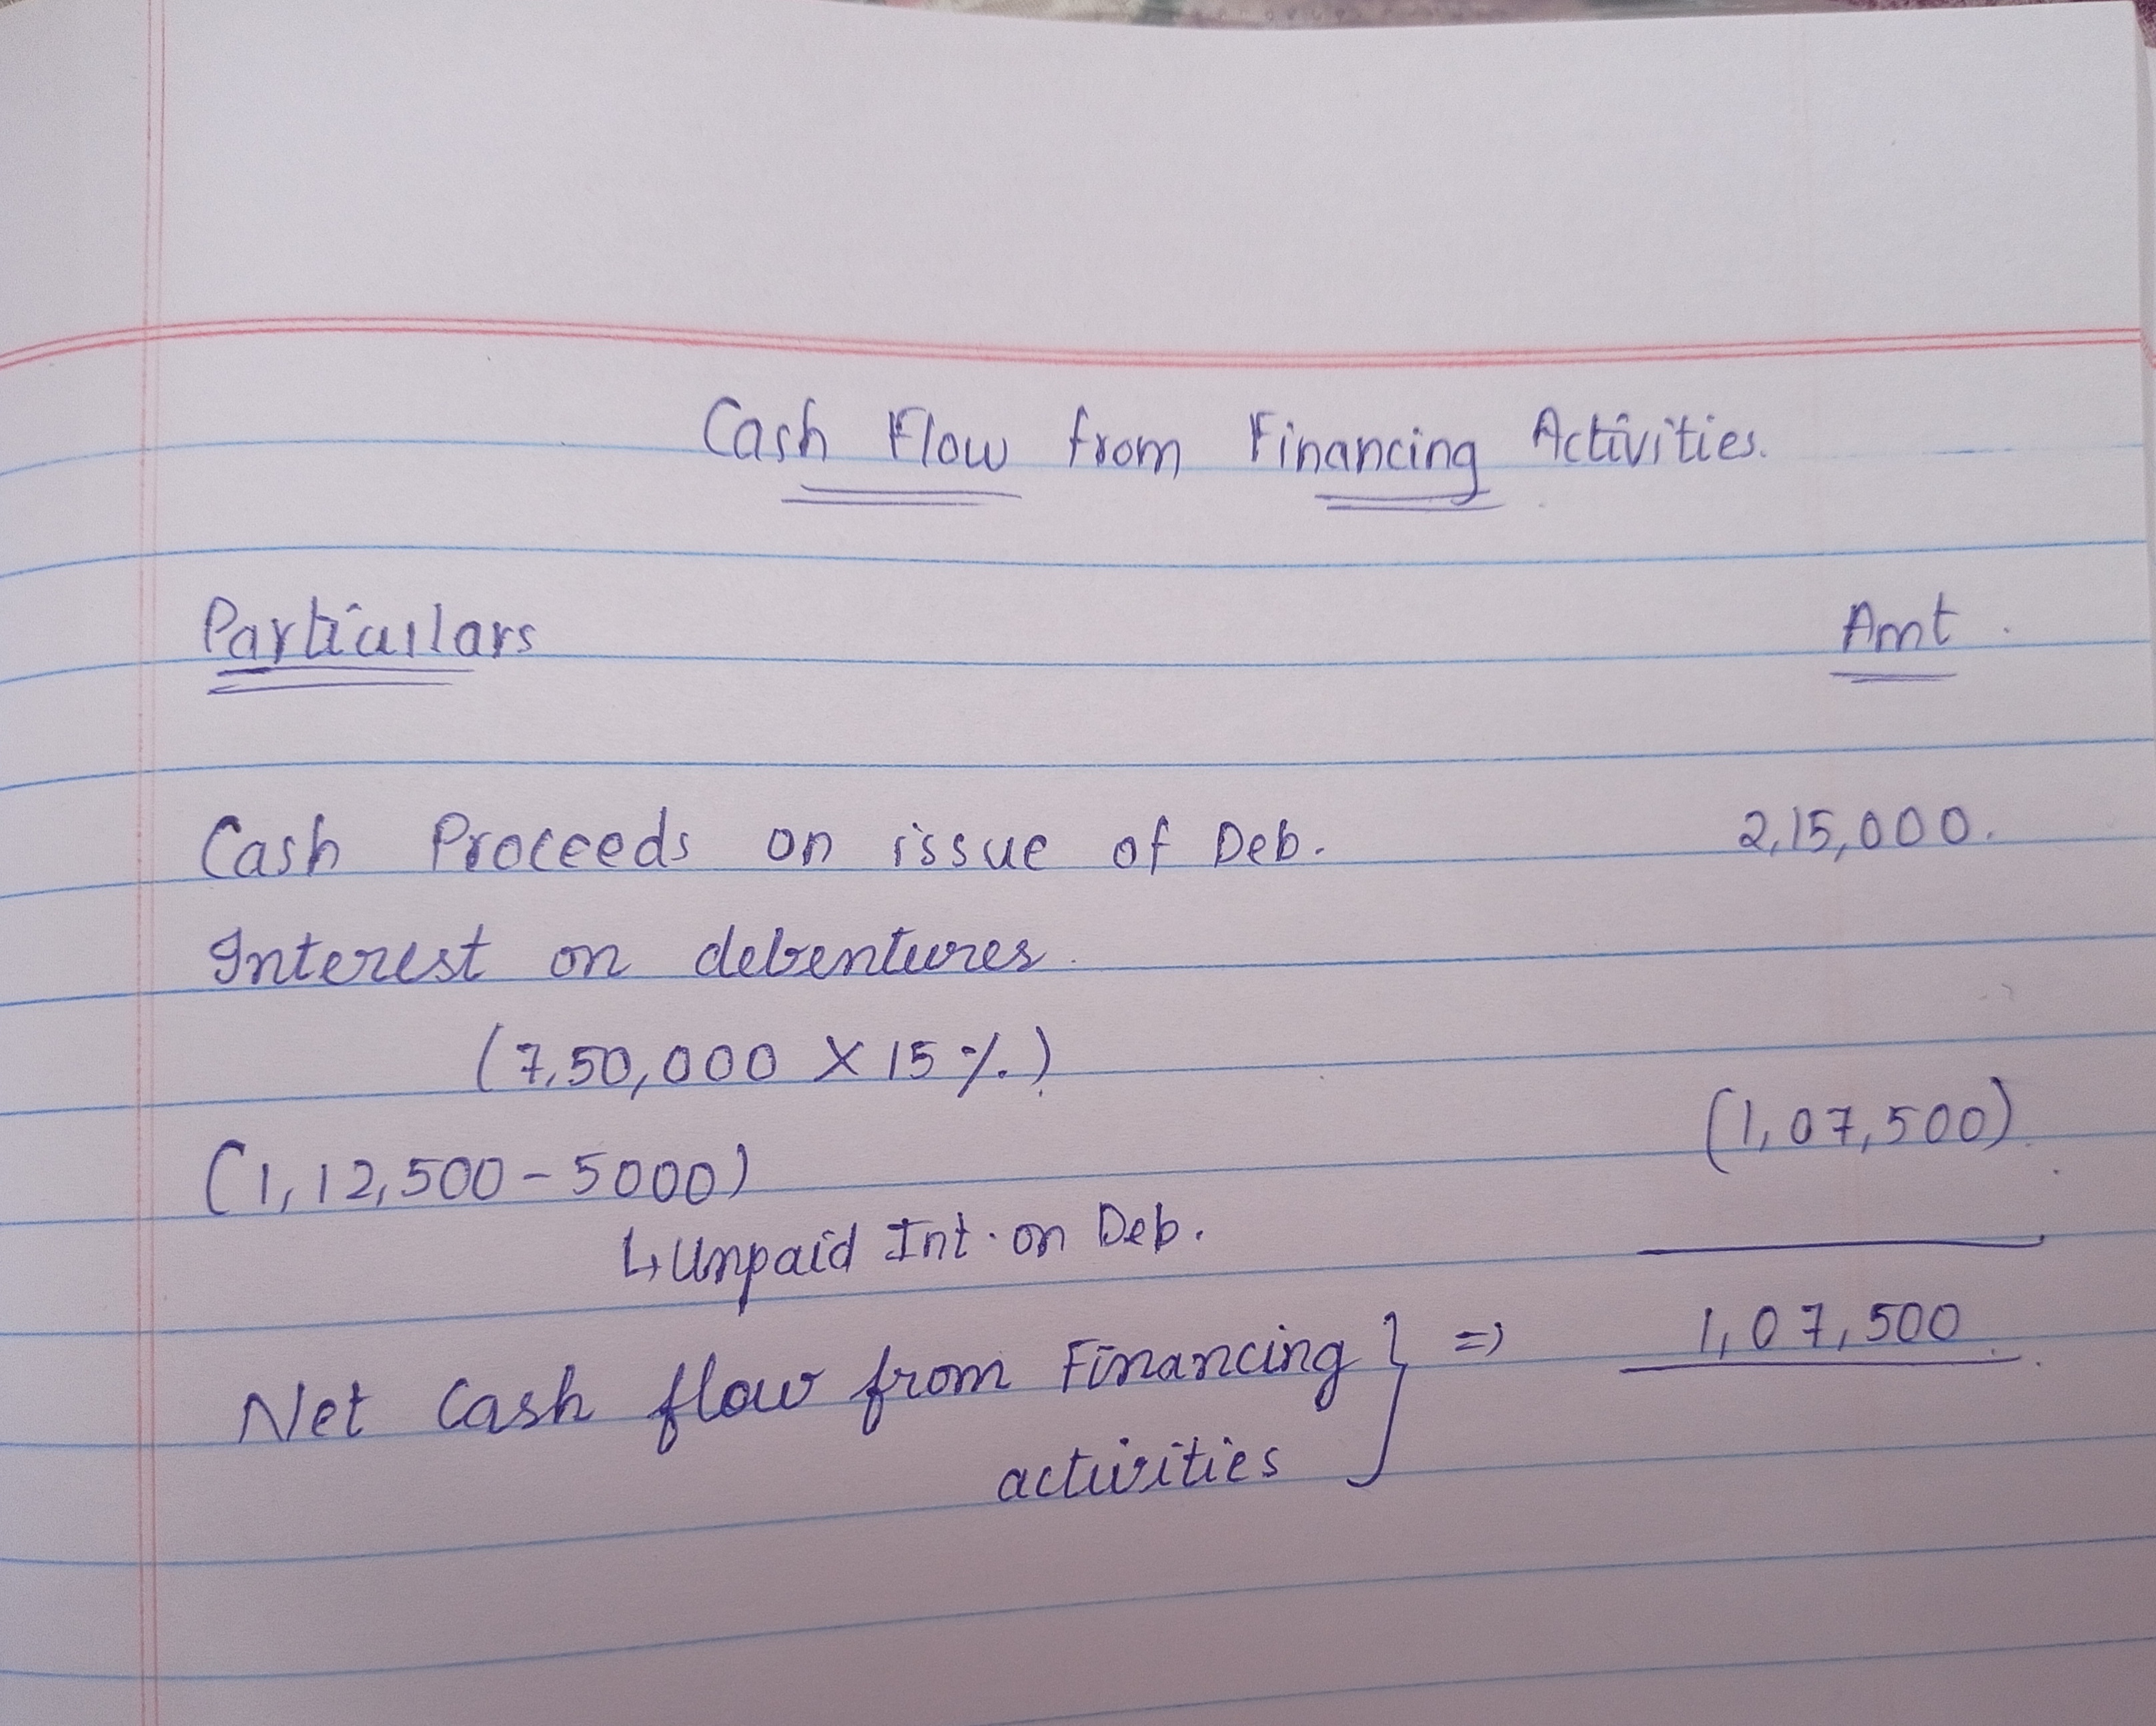 Cash Flow from Financing Activities.
Particulars Amt.
Cash Proceeds on issue of Deb. 2,15,000.
Interest on debentures.
(7,50,000 X 15%)
(1,12,500 - 5000) (1,07,500)
↳ Unpaid Int. on Deb.
Net Cash flow from Financing } => 1,07,500
activities